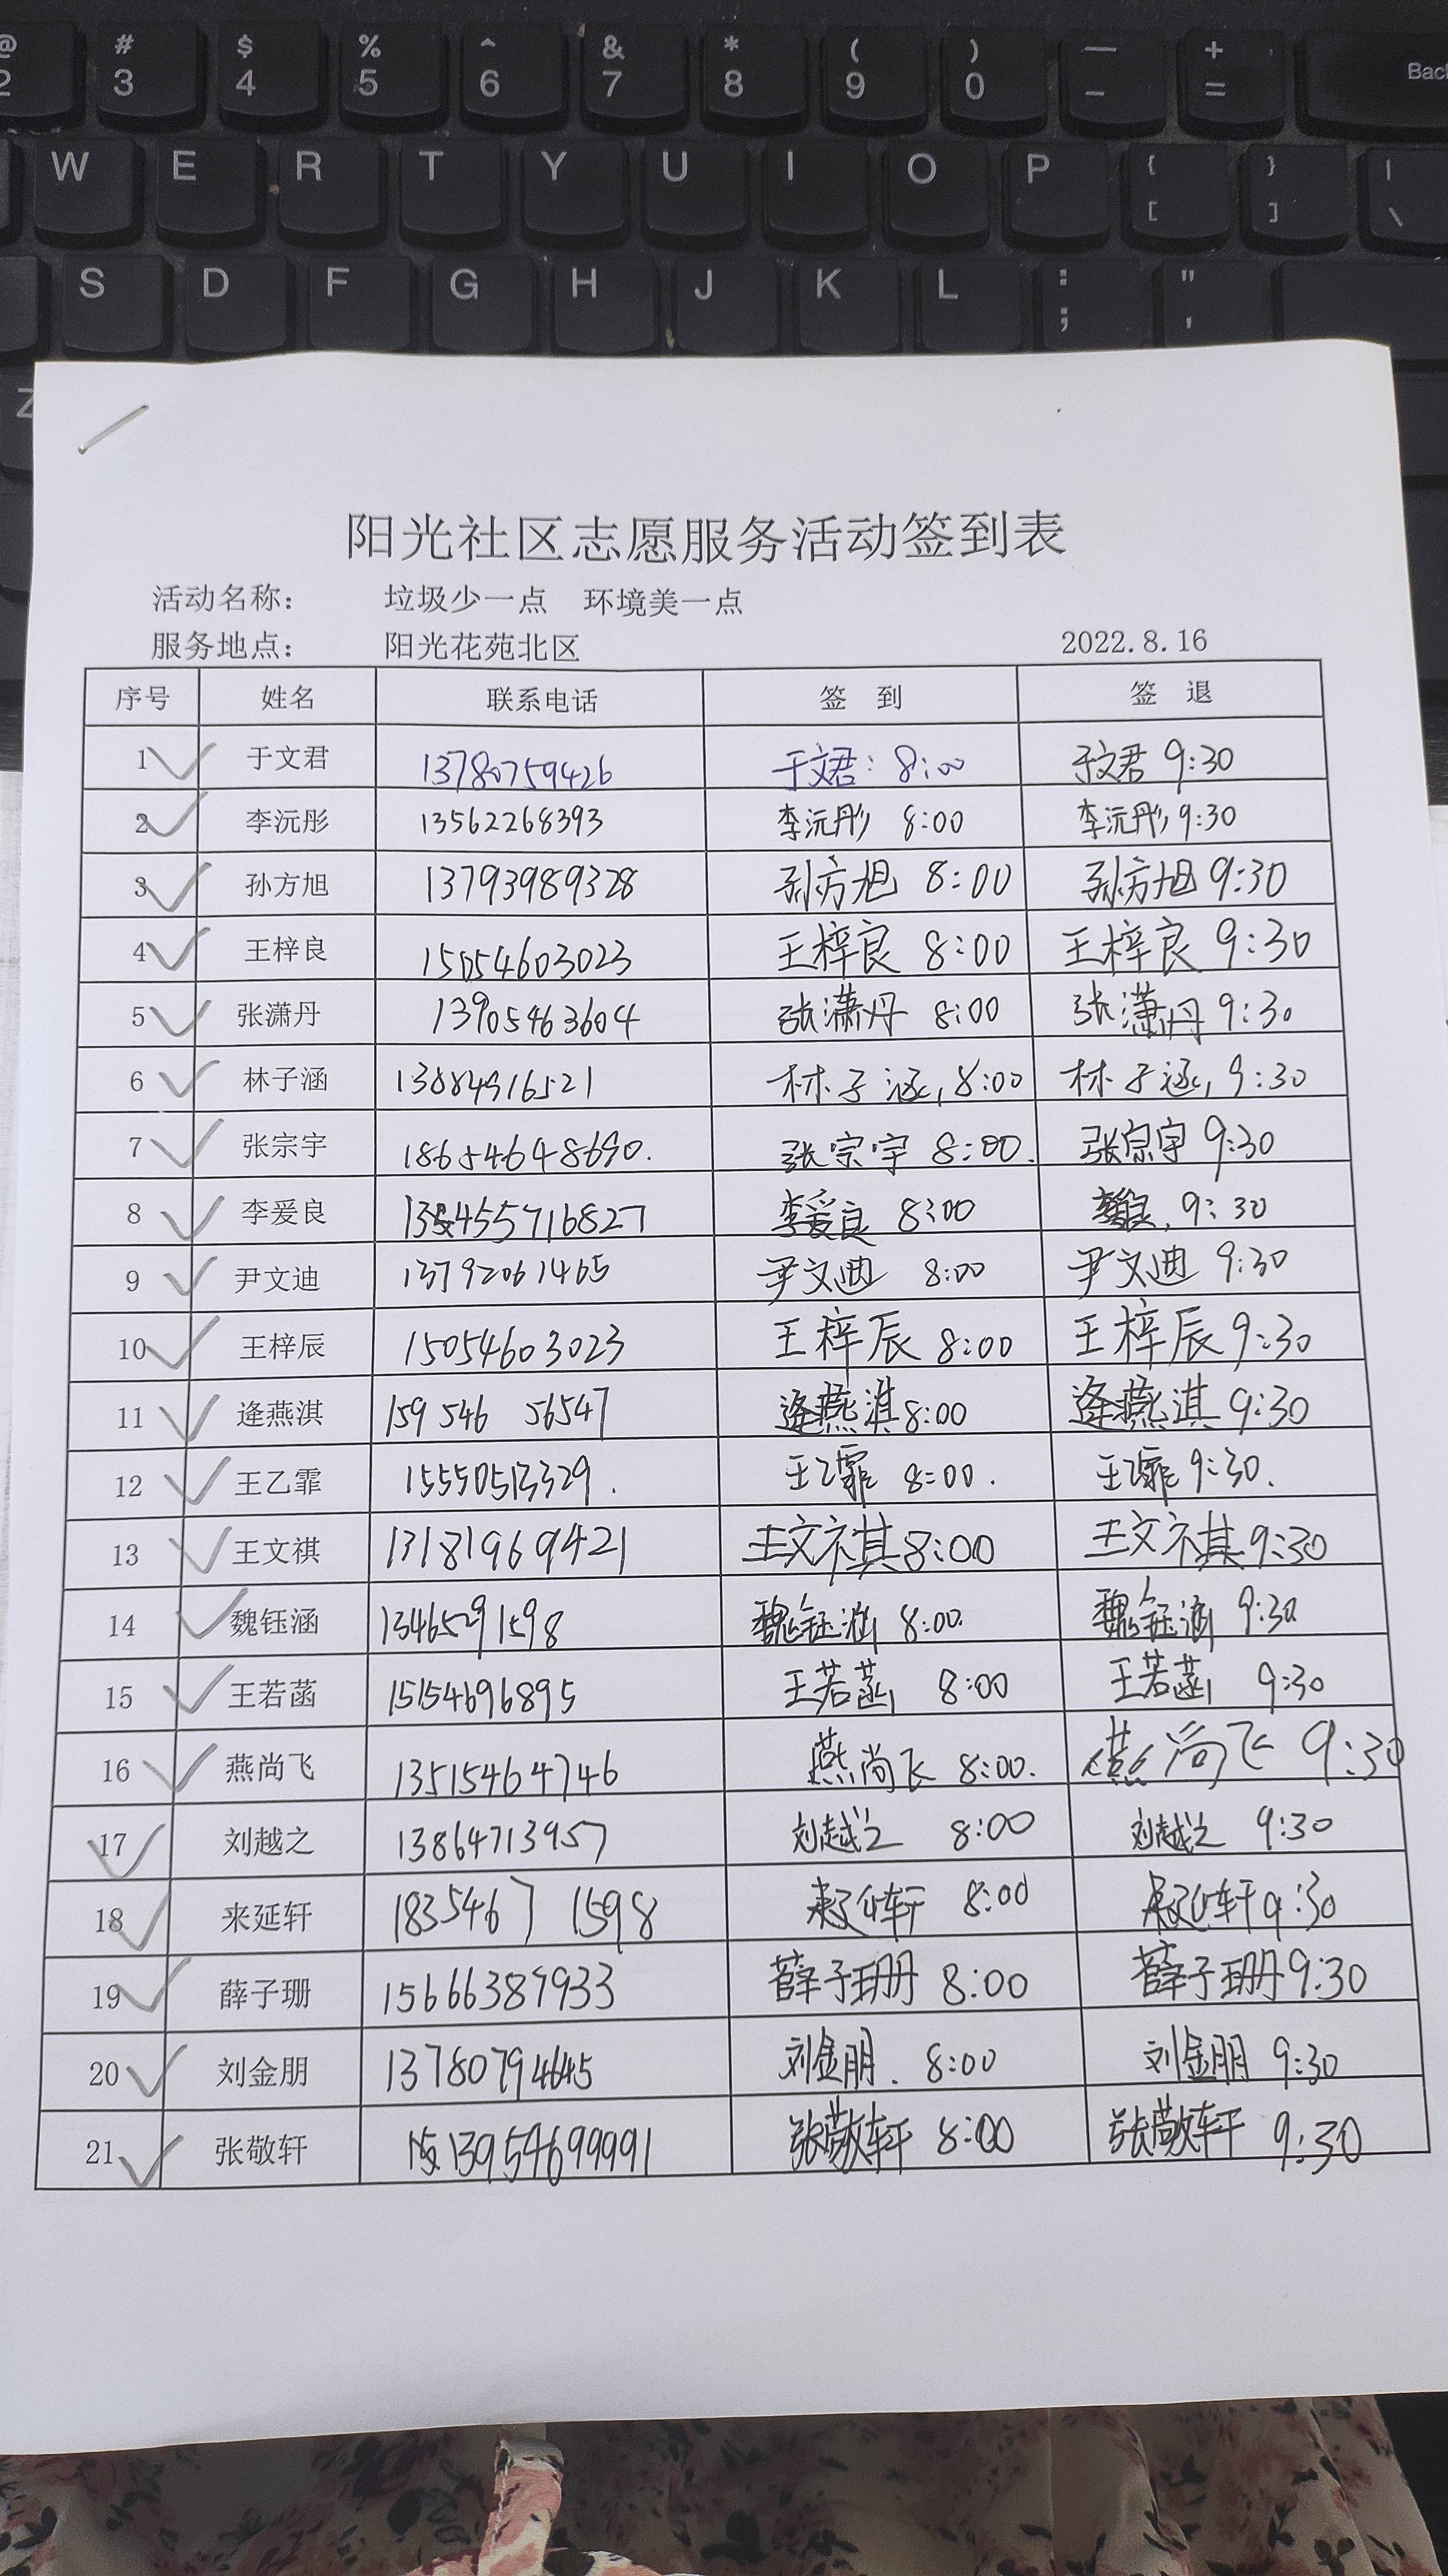 @ # $ % ^ & * ( ) — +
2 3 4 5 6 7 8 9 0 - = Bac
W E R T Y U I O P { } |
[ ] \
S D F G H J K L : "
; '
Z
阳光社区志愿服务活动签到表
活动名称： 垃圾少一点 环境美一点
服务地点： 阳光花苑北区 2022.8.16
序号 姓名 联系电话 签 到 签 退
1 于文君 13780759426 于文君：8:00 于文君 9:30
2 李沅彤 13562268393 李沅彤 8:00 李沅彤 9:30
3 孙方旭 13793989328 孙方旭 8:00 孙方旭 9:30
4 王梓良 15054603023 王梓良 8:00 王梓良 9:30
5 张潇丹 13905463604 张潇丹 8:00 张潇丹 9:30
6 林子涵 13884916521 林子涵, 8:00 林子涵, 9:30
7 张宗宇 18654648690. 张宗宇 8:00. 张宗宇 9:30
8 李爰良 李爰良 8:00 9:30
9 尹文迪 13792061465 尹文迪 8:00 尹文迪 9:30
10 王梓辰 15054603023 王梓辰 8:00 王梓辰 9:30
11 逄燕淇 159 546 56547 逄燕淇 8:00 逄燕淇 9:30
12 王乙霏 15550513329. 王乙霏 8:00. 王乙霏 9:30.
13 王文祺 13181969421 王文祺 8:00 王文祺 9:30
14 魏钰涵 13465291598 魏钰涵 8:00. 魏钰涵 9:30
15 王若菡 15154696895 王若菡 8:00 王若菡 9:30
16 燕尚飞 13515464746 燕尚飞 8:00. 燕尚飞 9:30
17 刘越之 13864713957 刘越之 8:00 刘越之 9:30
18 来延轩 1835467 1598 来延轩 8:00 来延轩 9:30
19 薛子珊 15666387933 薛子珊 8:00 薛子珊 9:30
20 刘金朋 13780794645 刘金朋. 8:00 刘金朋 9:30
21 张敬轩 13954699991 张敬轩 8:00 张敬轩 9:30